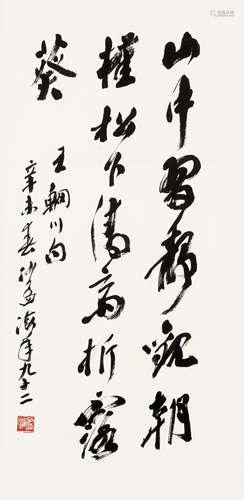 山中習静觀朝
槿松下清齋折露
葵
王輞川句
辛未春沙孟海年九十二